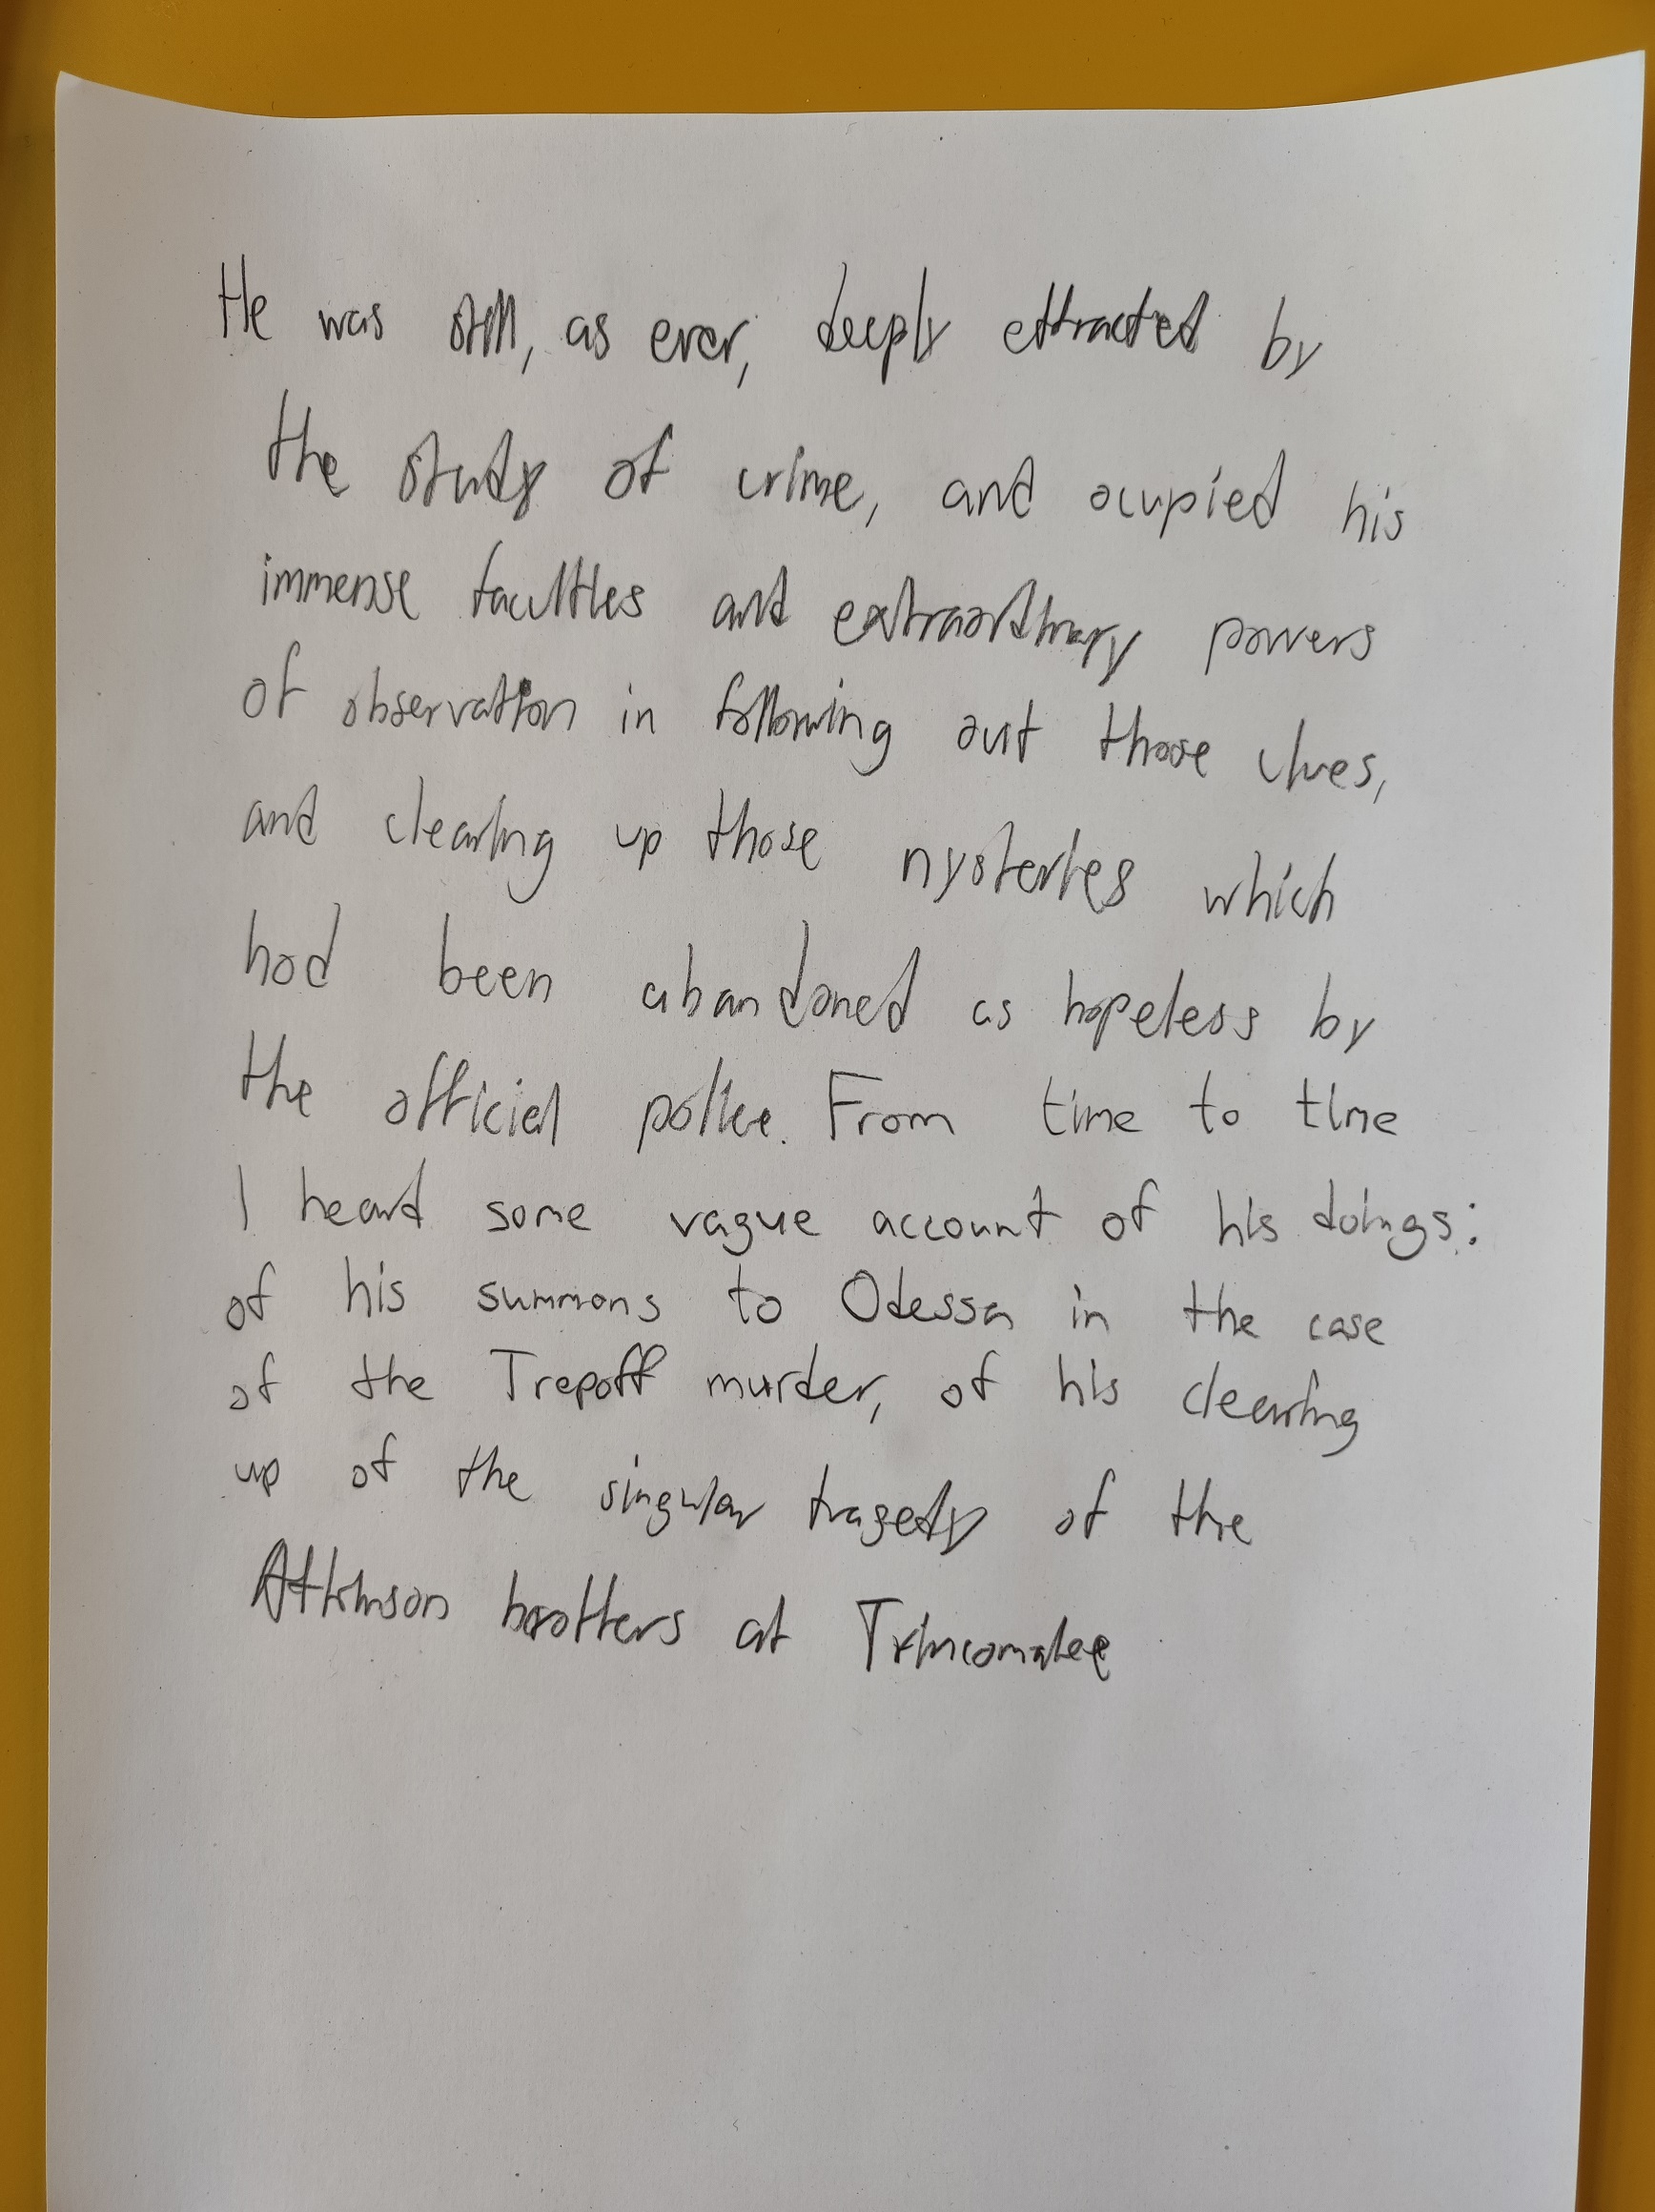 He was still, as ever, deeply attracted by
the study of crime, and ocupied his
immense faculties and extraordinary powers
of observation in following out those clues,
and clearing up those nysteries which
had been abandoned as hopeless by
the official police. From time to time
I heard some vague account of his doings:
of his summons to Odessa in the case
of the Trepoff murder, of his clearing
up of the singular tragedy of the
Atkinson brotters at Trincomalee